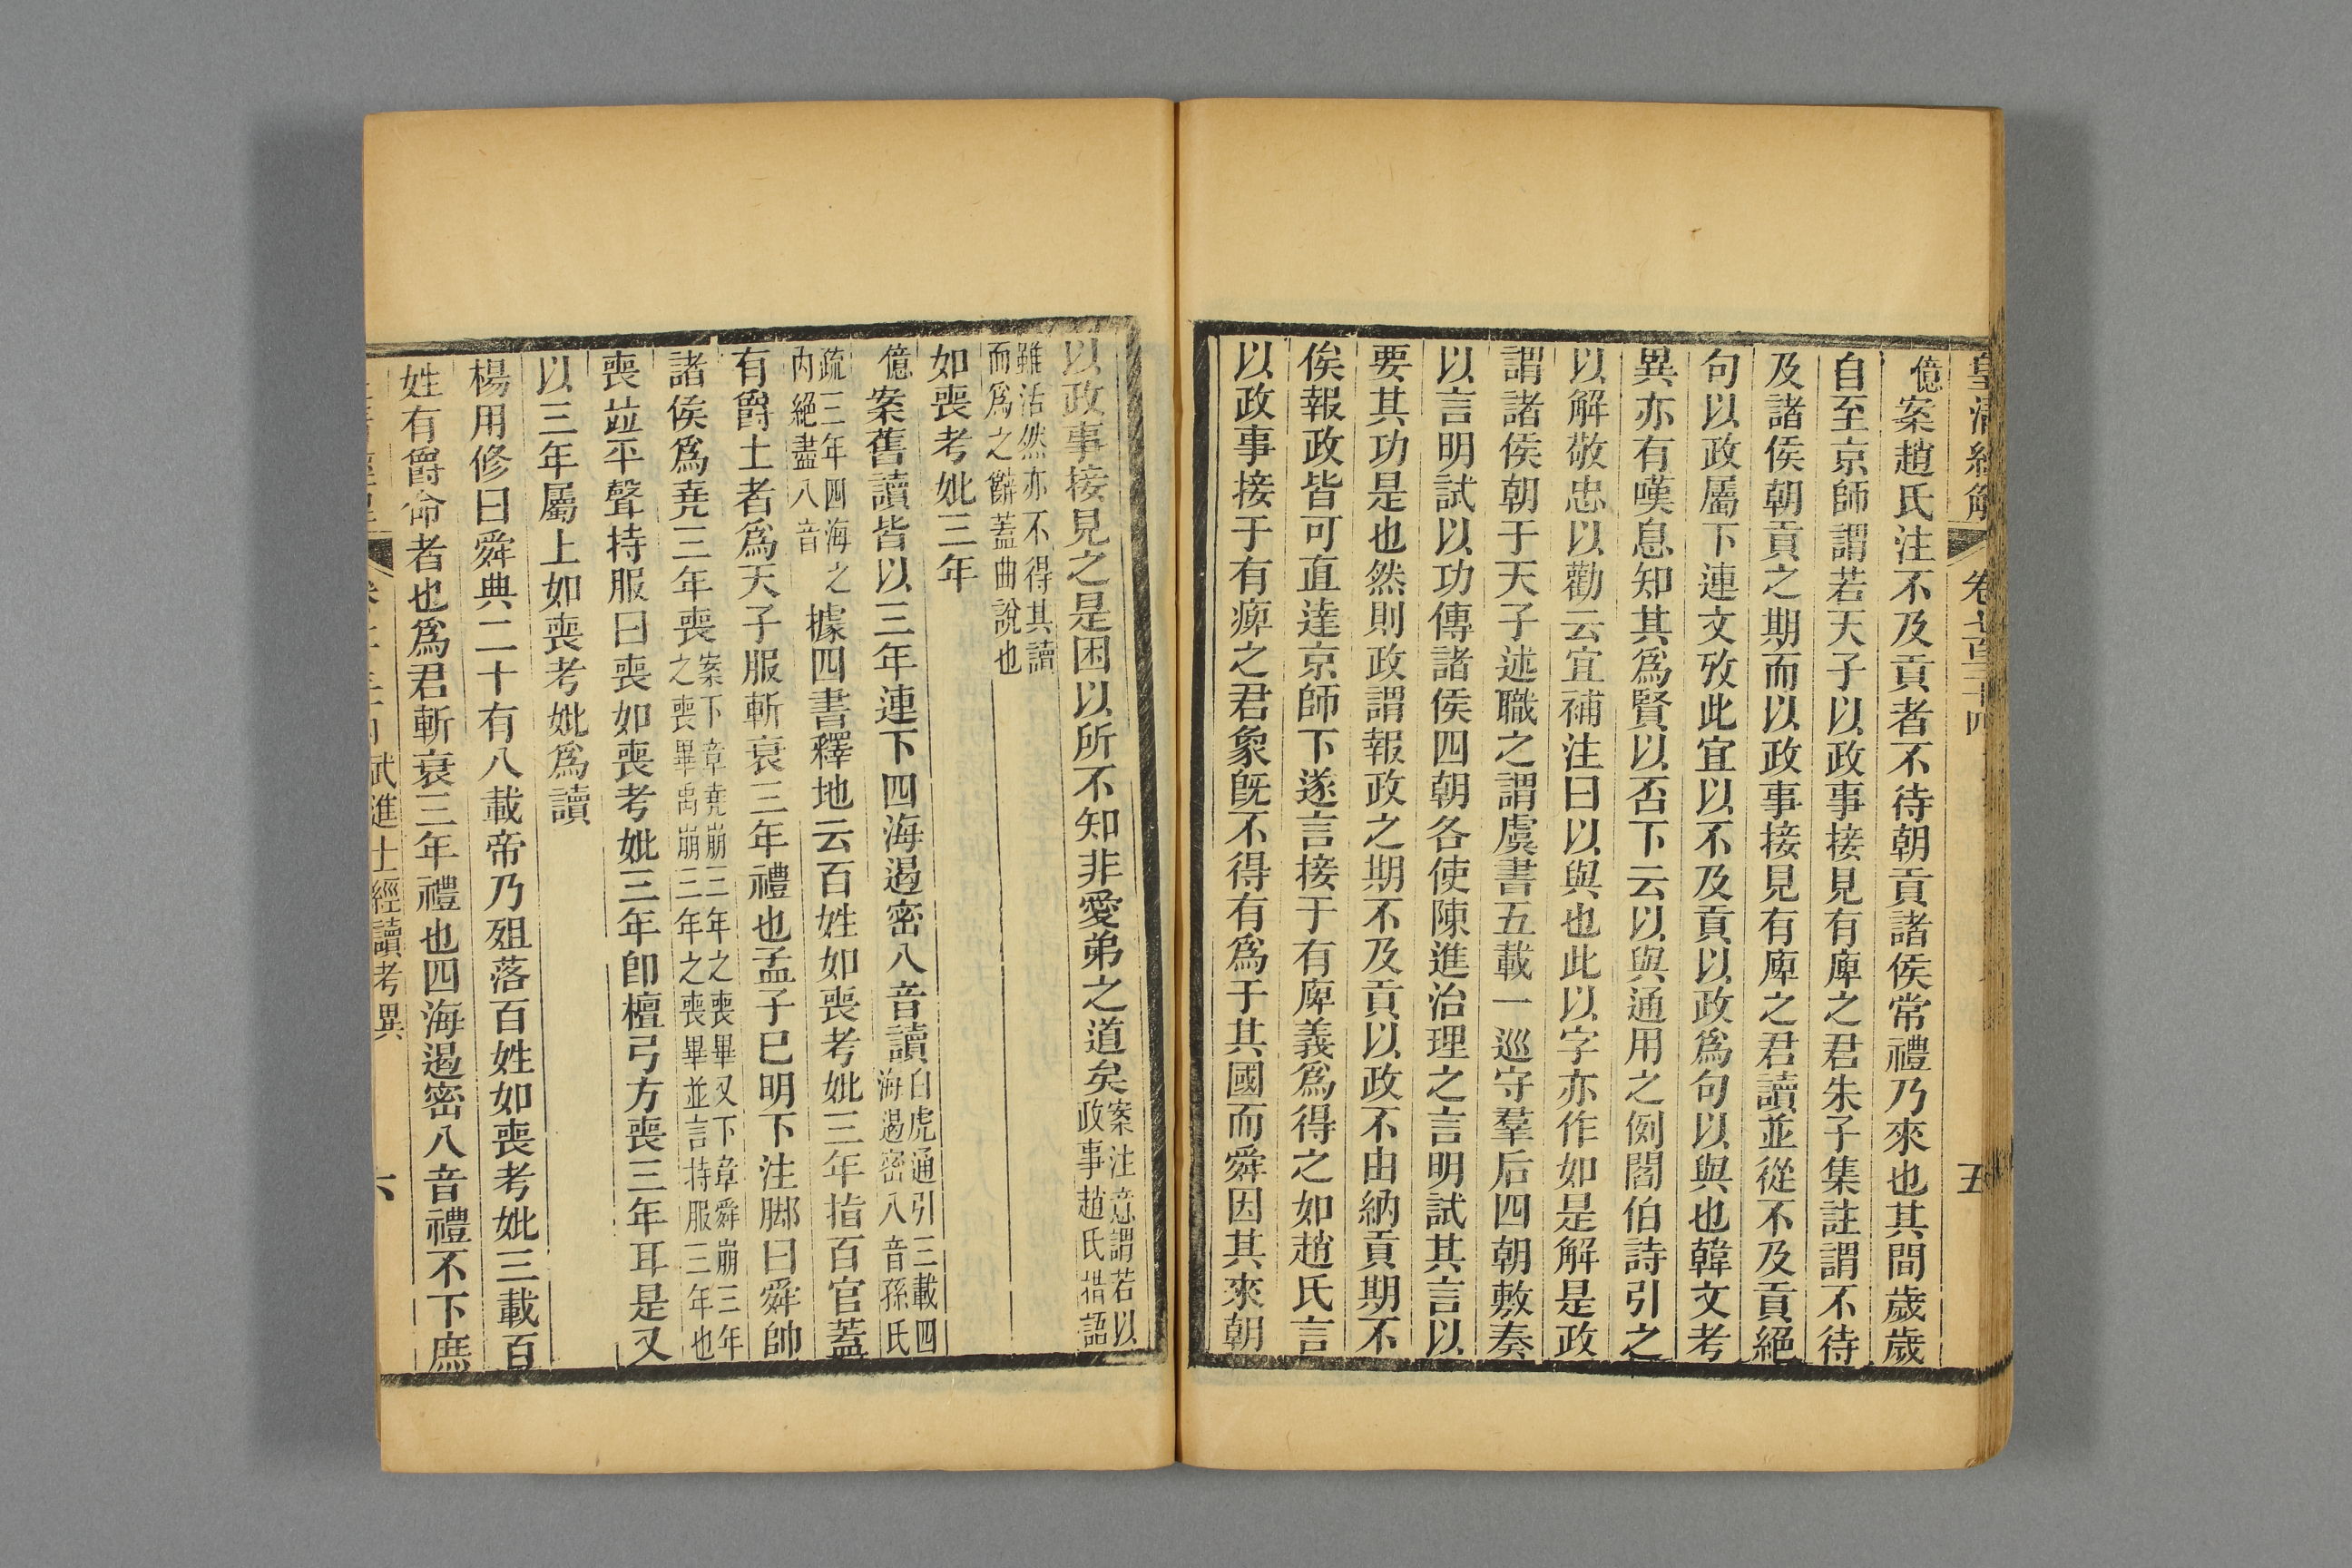 皇清經解 卷七百二十四 五
億案趙氏注不及貢者不待朝貢諸侯常禮乃來也其間歲歲
自至京師謂若天子以政事接見有庳之君朱子集註謂不待
及諸侯朝貢之期而以政事接見有庳之君讀並從不及貢絕
句以政屬下連文攷此宜以不及貢以政爲句以與也韓文考
異亦有嘆息知其爲賢以否下云以與通用之例閻伯詩引之
以解敬忠以勸云宜補注曰以與也此以字亦作如是解是政
謂諸侯朝于天子述職之謂虞書五載一巡守羣后四朝敷奏
以言明試以功傳諸侯四朝各使陳進治理之言明試其言以
要其功是也然則政謂報政之期不及貢以政不由納貢期不
俟報政皆可直達京師下遂言接于有庳義爲得之如趙氏言
以政事接于有庳之君象旣不得有爲于其國而舜因其來朝
以政事接見之是困以所不知非愛弟之道矣案注意謂若以
政事趙氏增語
雖活然亦不得其讀
而爲之辭蓋曲說也
如喪考妣三年
億案舊讀皆以三年連下四海遏密八音讀白虎通引三載四
海遏密八音孫氏
疏三年四海之
內絕盡八音據四書釋地云百姓如喪考妣三年指百官蓋
有爵土者爲天子服斬衰三年禮也孟子巳明下注脚曰舜帥
諸侯爲堯三年喪案下章堯崩三年之喪畢又下章舜崩三年
之喪畢禹崩三年之喪畢並言持服三年也
喪竝平聲持服曰喪如喪考妣三年卽檀弓方喪三年耳是又
以三年屬上如喪考妣爲讀
楊用修曰舜典二十有八載帝乃殂落百姓如喪考妣三載百
姓有爵命者也爲君斬衰三年禮也四海遏密八音禮不下庶
武進士經讀考異 六